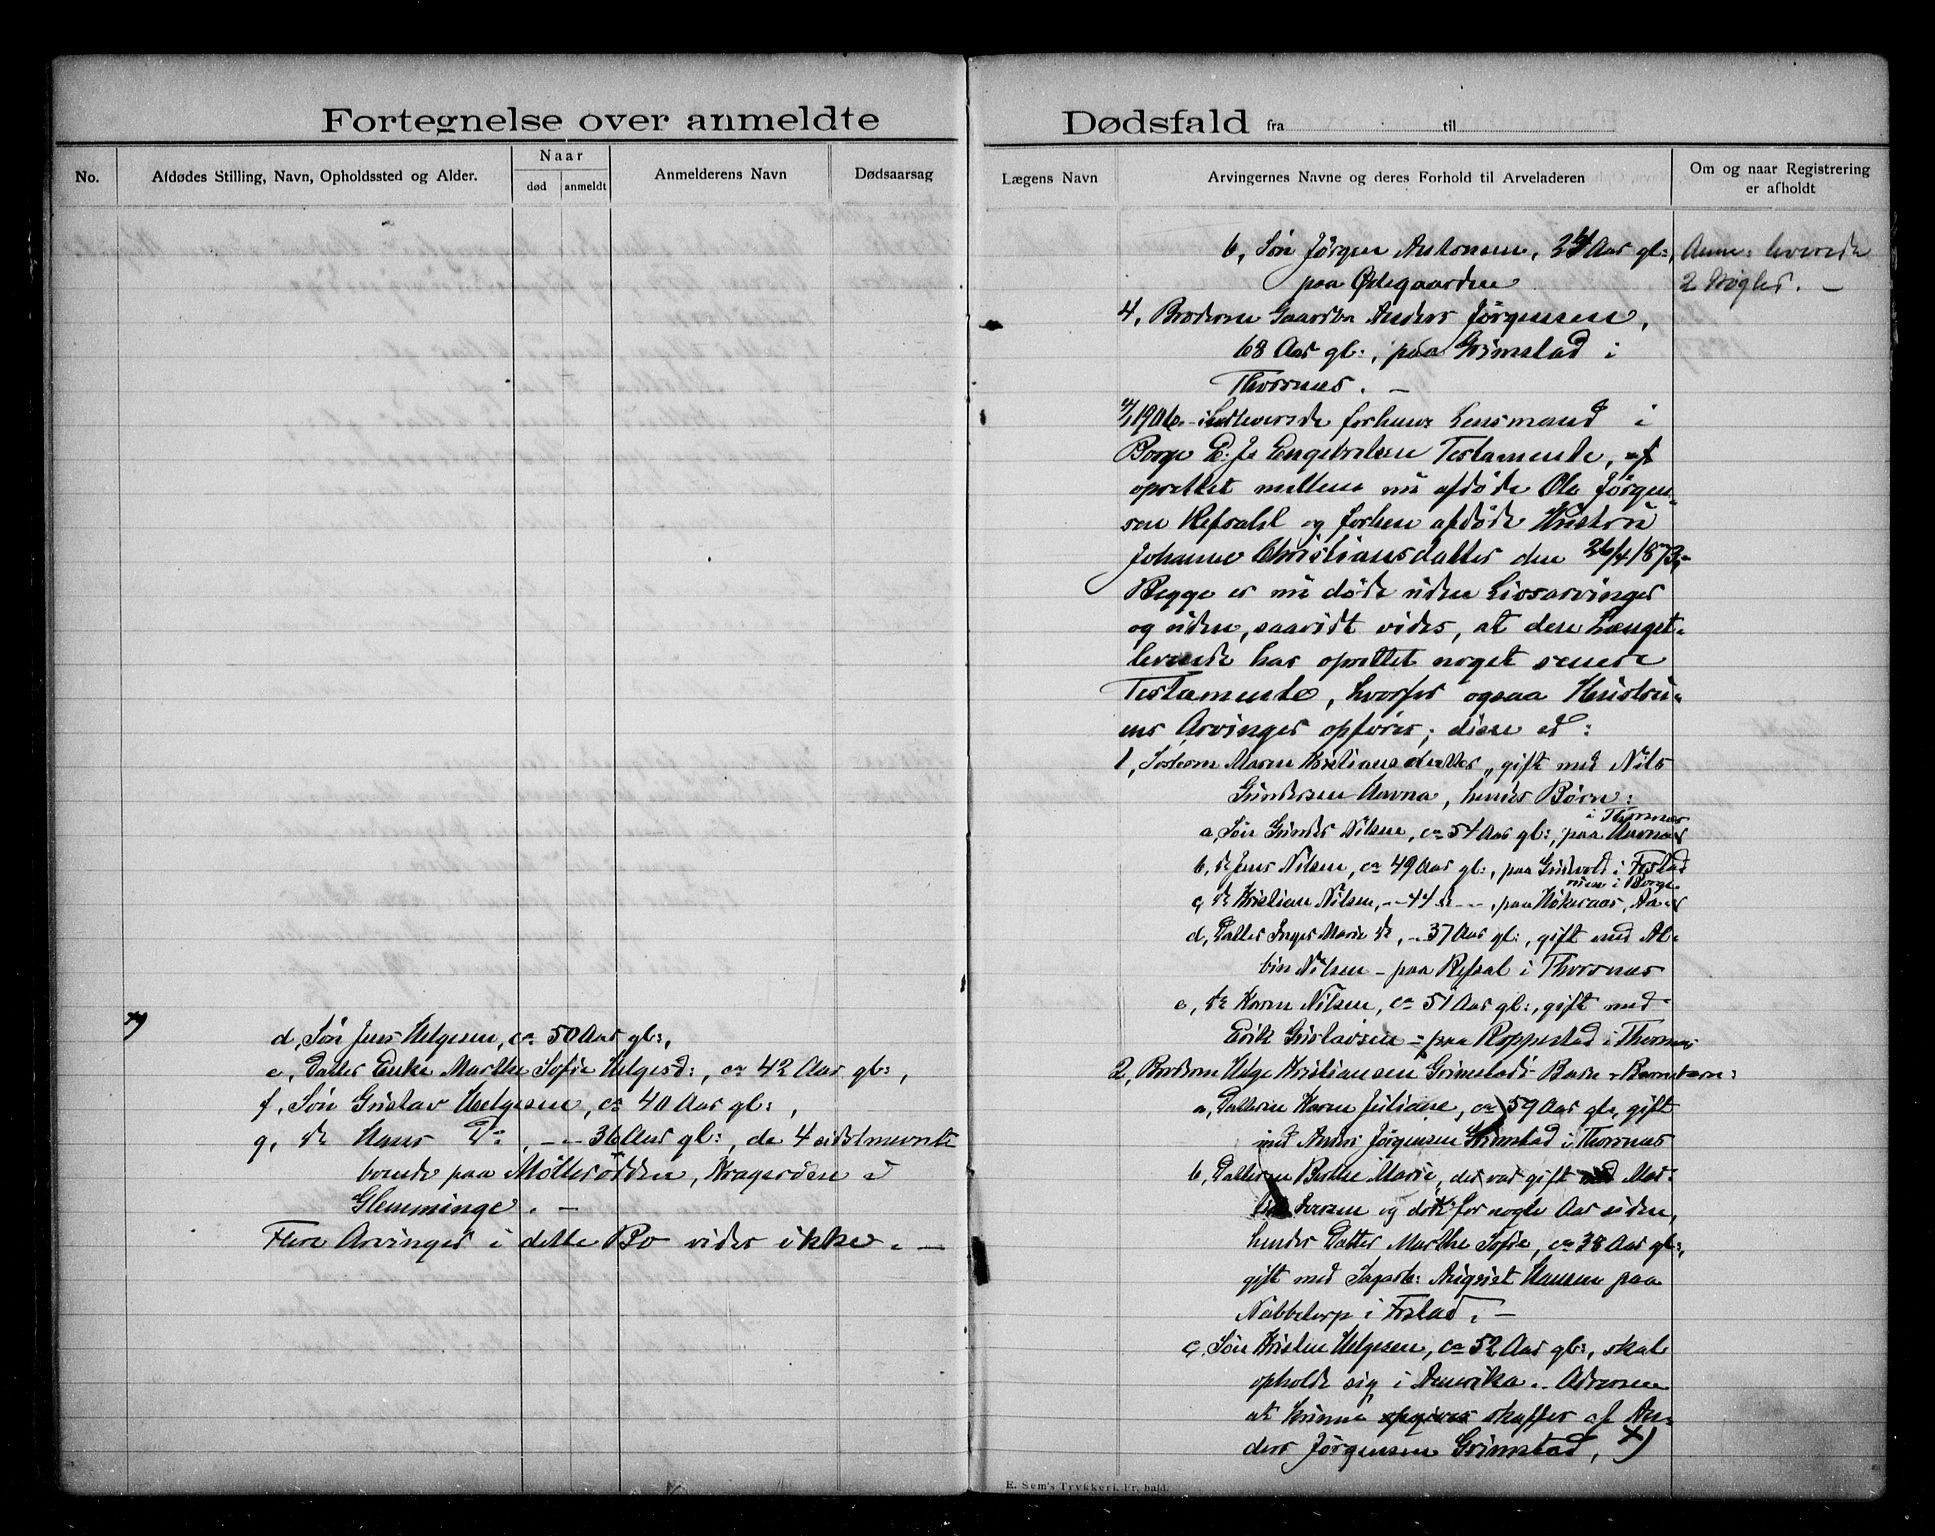 Fortegnelse over anmeldte
No.
Afdødes Stilling, Navn, Opholdssted og Alder.
Naar
død
anmeldt
Anmelderens Navn
Dødsaarsag
x)
d, Søn Jens Helgesen, ca 50 Aar gl:,
e, Datter Enke Marthe Sofie Helgesd:, ca 42 Aar gl:,
f, Søn Gustav Helgesen, ca 40 Aar gl:,
g, do Hans Do, - - 36 Aar gl:, de 4 sidstnevnte
boende paa Møllerodden, Kragerøen i
Glemminge. -
Flere Arvinger i dette Bo vides ikke. -
Dødsfald fra til
Lægens Navn
Arvingernes Navne og deres Forhold til Arveladeren
Om og naar Registrering
er afholdt
b, Søn Jørgen Antonsen, 24 Aar gl:,
paa Ødegaarden
4, Broderen Gaardbr Anders Jørgensen,
68 Aar gl:, paa Grimstad i
Thorsnes. -
1906 - Indleverede forhenv Lensmand i
Borge E. J. Engebretsen Testamente, af
oprettet mellem nu afdøde Ole Jørgen-
sen Refsahl og forhen afdøde Hustru
Johanne Christiansdatter den 26/4 1873,-
Begge er nu døde uden Livsarvinger
og uden, saavidt vides, at den Længst-
levende har oprettet noget senere
Testamente, hvorfor ogsaa Hustru-
ens Arvinger opføres; disse er:
1, Søsteren Maren Kristiansdatter, gift med Nils
Gundersen Aavna, hendes Børn:
a, Søn Gunder Nilsen, ca 54 Aar gl:, paa
i Thorsnes
b, do Jens Nilsen, ca 49 Aar gl:, paa i Frstad
c, do Kristian Nilsen, - - 44 do - -, paa
i Borge
d, Datter Inger Marie do, - 37 Aar gl:, gift med Al-
bin Nilsen - paa Refsal i Thorsnes
e, do Karen Nilsen, ca 51 Aar gl:, gift med
Erik Gustavsen - paa Roppestad i Thorsnes
2, Broderen Helge Kristiansen Grimstads Børn & Barnebørn:
a, Datteren Karen Juliane, ca 59 Aar gl, gift
med Anders Jørgensen Grimstad i Thorsnes
b, Datteren Berthe Marie, der var gift med
og døde for nogle Aar siden,
hendes Datter Marthe Sofie, ca 38 Aar gl:,
gift med Sagarb: August Hansen paa
Nabbetorp i Frstad. -
c, Søn Kristen Helgesen, ca 52 Aar gl:, skal
opholde sig i Amerika. Adressen
at kunne opgives skaffes af An-
ders Jørgensen Grimstad, x)
Anm: leverede
2 Nøgler. -
E. Sem's Trykkeri, Fr.hald.